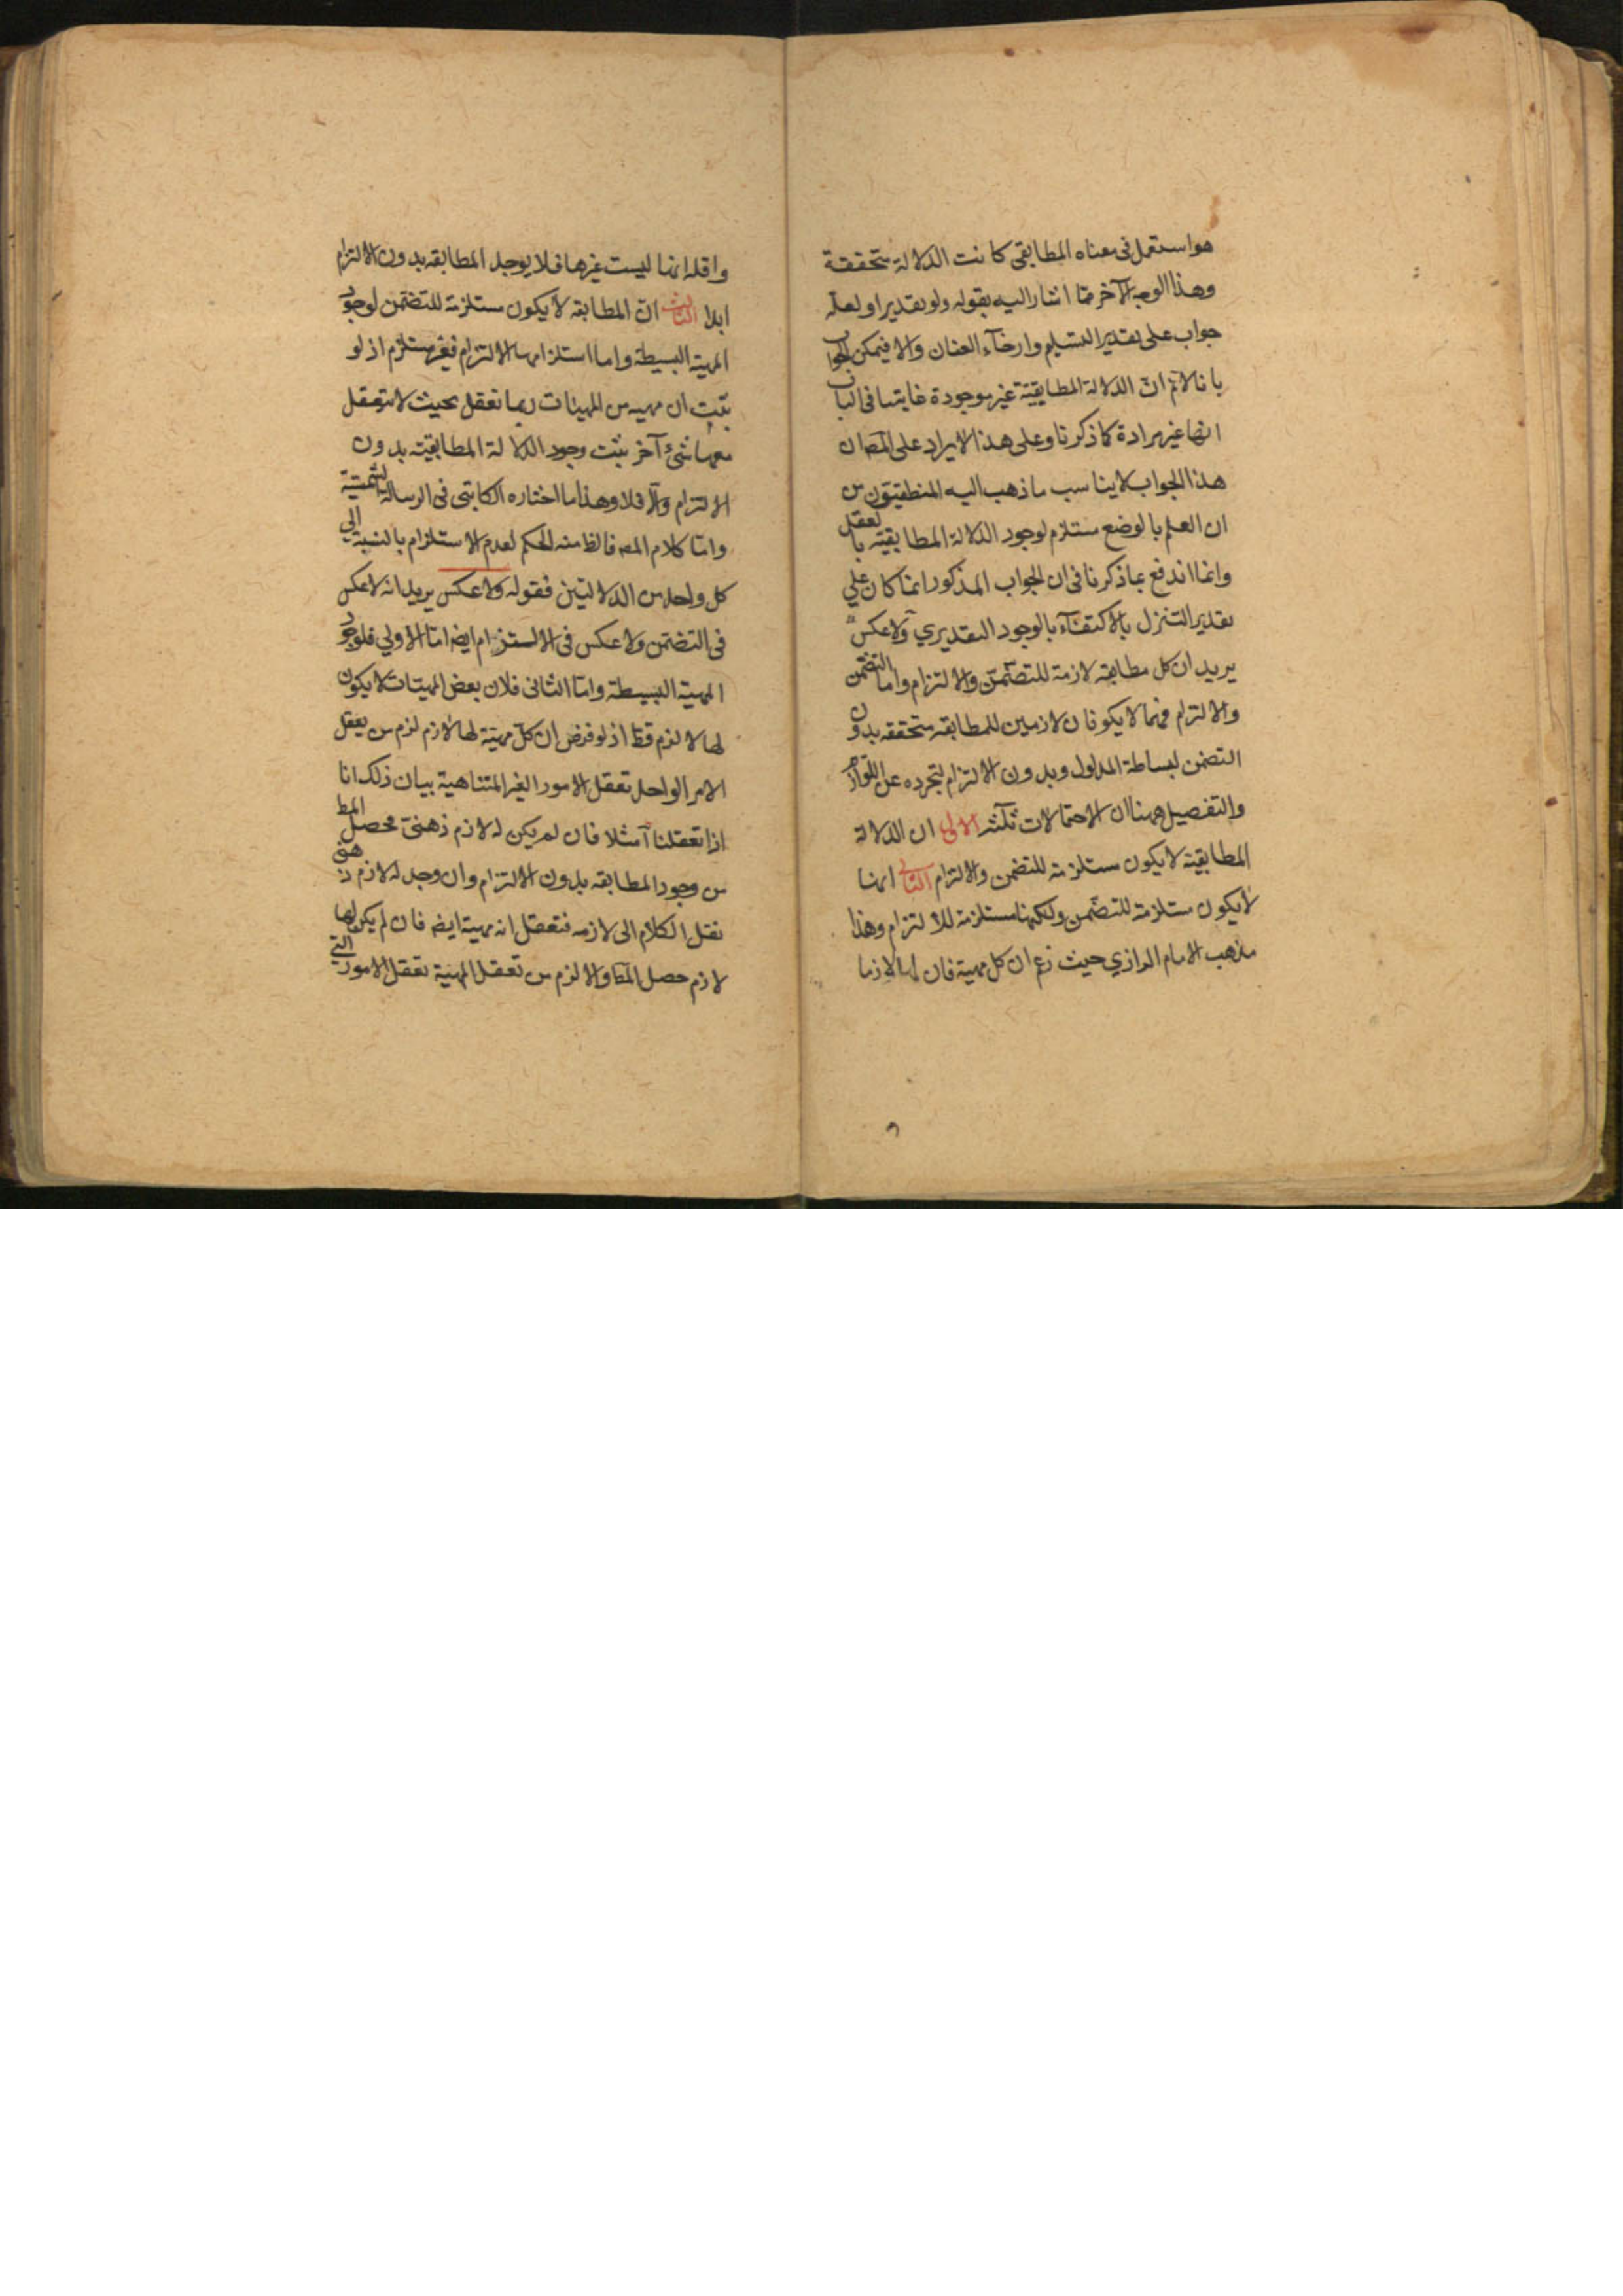 هو استعمل فى معناه المطابقى كانت الدلالة متحققة
وهذا الوجه الآخر مما اشار اليه بقوله ولو تقديرا ولعله
جواب على تقدير التسليم وارخاء العنان والا فيمكن الجواب
بانا لانم ان الدلالة المطابقية غير موجودة غايتها فى الباب
انها غير مرادة كما ذكرنا وعلى هذا الايراد على المص ان
هذا الجواب لا يناسب ما ذهب اليه المنطقيون من
ان العلم بالوضع مستلزم لوجود الدلالة المطابقية بالعقل
وانما اندفع بما ذكرنا فى ان الجواب المذكور انما كان علي
تقدير التنزل بالاكتفاء بالوجود التقديري ولا عكس
يريد ان كل مطابقه لازمة للتضمن والالتزام واما التضمن
والالتزام فهما لا يكونان لازمين للمطابقه متحققه بدون
التضمن لبساطة المدلول وبدون الالتزام لتجرده عن اللوازم
والتفصيل ههنا ان الاحتمالات ثلثه الاولى ان الدلالة
المطابقية لا يكون مستلزمة للتضمن والالتزام الثانى انها
لا يكون مستلزمة للتضمن ولكنها مستلزمة للالتزام وهذا
مذهب الامام الرازي حيث زعم ان كل مهية فان لها لازما
واقله انها ليست غيرها فلا يوجد المطابقه بدون الالتزام
ابدا الثالث ان المطابقه لا يكون مستلزمة للتضمن لوجود
المهية البسيطة واما استلزامها الالتزام فغير مستلزم اذ لو
يثبت ان مهيه من المهيات ربما تعقل بحيث لا تتعقل
معها شئ آخر يثبت وجود الدلالة المطابقيه بدون
الالتزام والا فلا وهذا ما اختاره الكاتبى فى الرسالة الشمسية
واما كلام المص فالظ منه الحكم لعدم الاستلزام بالنسبة الي
كل واحد من الدلالتين فقوله ولا عكس يريد انه لا عكس
فى التضمن ولا عكس فى الالستزام ايض اما الاولي فلوجود
المهية البسيطة واما الثانى فلان بعض المهيات لا يكون
لها لا لزم قط اذ لو فرض ان كل مهية لها لازم لزم من تعقل
الامر الواحد تعقل الامور الغير المتناهية بيان ذلك انا
اذا تعقلنا آ مثلا فان لم يكن له لازم ذهنى محصل المط
من وجود المطابقه بدون الالتزام وان وجد له لازم ذهنى
نقل الكلام الى لازمه فتعقل انه مهية ايض فان لم يكن لها
لازم حصل المط والا لزم من تعقل المهية تعقل الامور التي